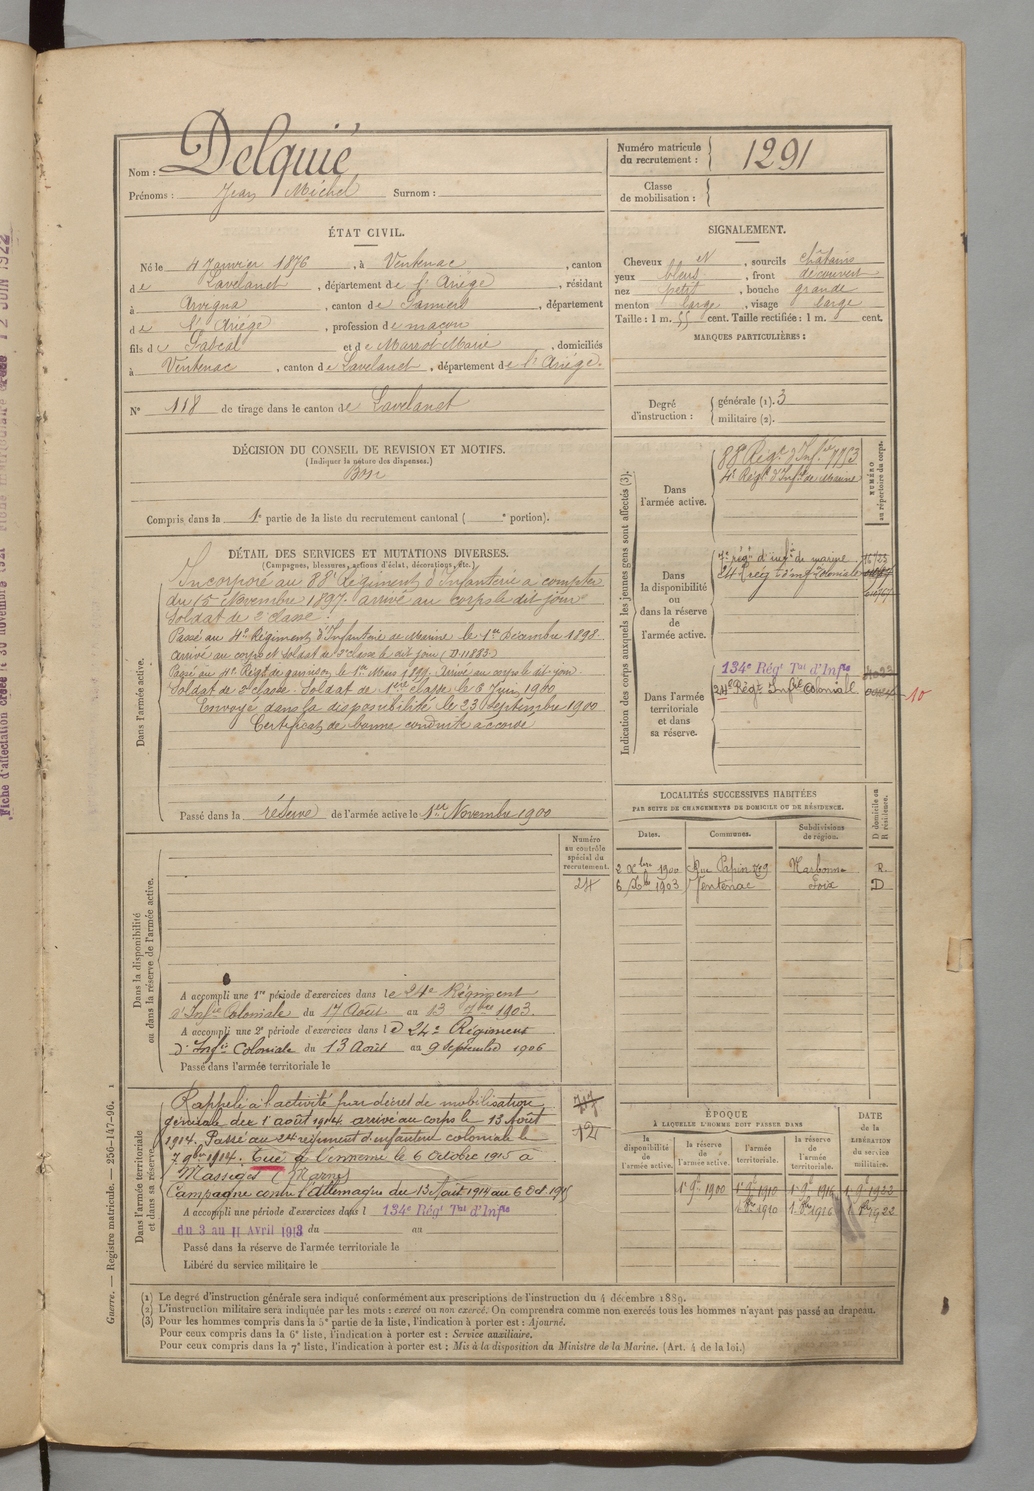 Nom : Delquié
Prénoms : Jean Michel Surnom :
Numéro matricule du recrutement : 1291
Classe de mobilisation :
ÉTAT CIVIL.
Né le 4 Janvier 1876, à Ventenac, canton
de Lavelanet, département de l'Ariège, résidant
à Arvigna, canton de Pamiers, département
de l'Ariège, profession de maçon
fils de Pascal et de Marrot Marie, domiciliés
à Ventenac, canton de Lavelanet, département de l'Ariège.
N° 118 de tirage dans le canton de Lavelanet
SIGNALEMENT.
Cheveux N, sourcils châtains
yeux bleus, front découvert
nez petit, bouche grande
menton large, visage large
Taille : 1 m. 55 cent. Taille rectifiée : 1 m. cent.
MARQUES PARTICULIÈRES :
Degré d'instruction : générale (1). 3
militaire (2).
DÉCISION DU CONSEIL DE REVISION ET MOTIFS.
(Indiquer la nature des dispenses.)
Bon
Compris dans la 1e partie de la liste du recrutement cantonal ( e portion).
DÉTAIL DES SERVICES ET MUTATIONS DIVERSES.
(Campagnes, blessures, actions d'éclat, décorations, etc.)
Dans l'armée active.
Incorporé au 88e Régiment d'Infanterie a compter
du 15 Novembre 1897. arrivé au corps le dit jour
Soldat de 2e classe.
Passé au 4e Régiment d'Infanterie de Marine le 1er Décembre 1898.
Arrivé au corps et soldat de 2e classe le dit jour (D 11883)
Passé au 4e Régt de garnison le 1er Mars 1899. Arrivé au corps le dit jour.
Soldat de 2e classe. Soldat de 1ère classe le 6 Juin 1900
Envoyé dans la disponibilité le 23 Septembre 1900
Certificat de bonne conduite accordé
Passé dans la réserve de l'armée active le 1er Novembre 1900
Indication des corps auxquels les jeunes gens sont affectés (3).
NUMÉRO au répertoire du corps.
Dans l'armée active.
88e Régt d'Infrie 7753
4e Régt d'Infie de Marine
Dans la disponibilité ou dans la réserve de l'armée active.
7e régt d'infie de marine.
24e rég d'infie coloniale
Dans l'armée territoriale et dans sa réserve.
134e Régt Tal d'Infie
24e Régt Infie Colonial
10
LOCALITÉS SUCCESSIVES HABITÉES
PAR SUITE DE CHANGEMENTS DE DOMICILE OU DE RÉSIDENCE.
Dates. Communes. Subdivisions de région. D domicile ou R résidence.
2 Xbre 1900 Rue Papin Narbonne R.
6 Xbre 1903 Ventenac Foix D
Dans la disponibilité ou dans la réserve de l'armée active.
Numéro au contrôle spécial du recrutement.
24
A accompli une 1re période d'exercices dans le 24e Régiment
d'Infie Coloniale du 17 Août au 13 7bre 1903.
A accompli une 2e période d'exercices dans le 24e Régiment
d'Infie Coloniale du 13 Août au 9 Septembre 1906
Passé dans l'armée territoriale le
Dans l'armée territoriale et dans sa réserve.
Rappelé à l'activité par décret de mobilisation
générale du 1 août 1914. arrivé au corps le 13 Août
1914. Passé au 24 régiment d'infanterie coloniale le
7 9bre 1914. Tué à l'ennemi le 6 Octobre 1915 à
Massiges (Marne)
Campagne contre l'Allemagne du 13 Août 1914 au 6 Oct. 1915
717
12
A accompli une période d'exercices dans l 134e Régt Tal d'Infie
du 3 au 11 Avril 1913 du au
Passé dans la réserve de l'armée territoriale le
Libéré du service militaire le
ÉPOQUE
À LAQUELLE L'HOMME DOIT PASSER DANS
la disponibilité de l'armée active. la réserve de l'armée active. l'armée territoriale. la réserve de l'armée territoriale.
DATE de la LIBÉRATION du service militaire.
1er 9bre 1900 1er 9bre 1910 1er 9bre 1916 1er 9bre 1922
1 8bre 1910 1 8bre 1916 1 8bre 1922
(1) Le degré d'instruction générale sera indiqué conformément aux prescriptions de l'instruction du 4 décembre 1889.
(2) L'instruction militaire sera indiquée par les mots : exercé ou non exercé. On comprendra comme non exercés tous les hommes n'ayant pas passé au drapeau.
(3) Pour les hommes compris dans la 5e partie de la liste, l'indication à porter est : Ajourné.
Pour ceux compris dans la 6e liste, l'indication à porter est : Service auxiliaire.
Pour ceux compris dans la 7e liste, l'indication à porter est : Mis à la disposition du Ministre de la Marine. (Art. 4 de la loi.)
Guerre. — Registre matricule. — 256-147-96.